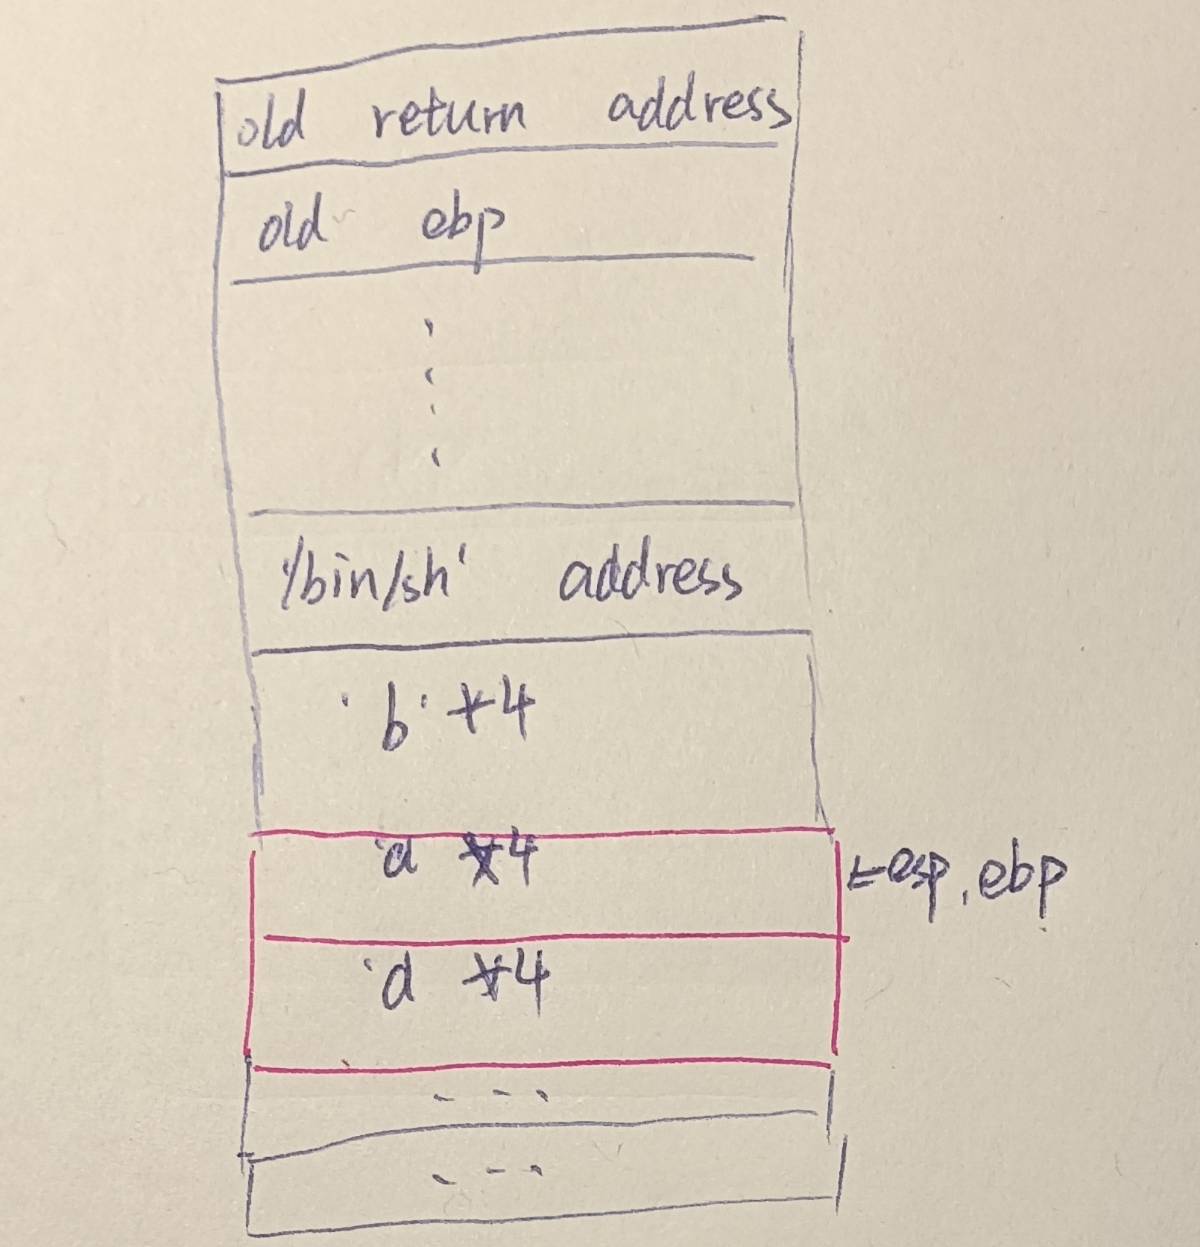 old return address
old ebp
'/bin/sh' address
'b' *4
'a *4
←esp, ebp
'a *4